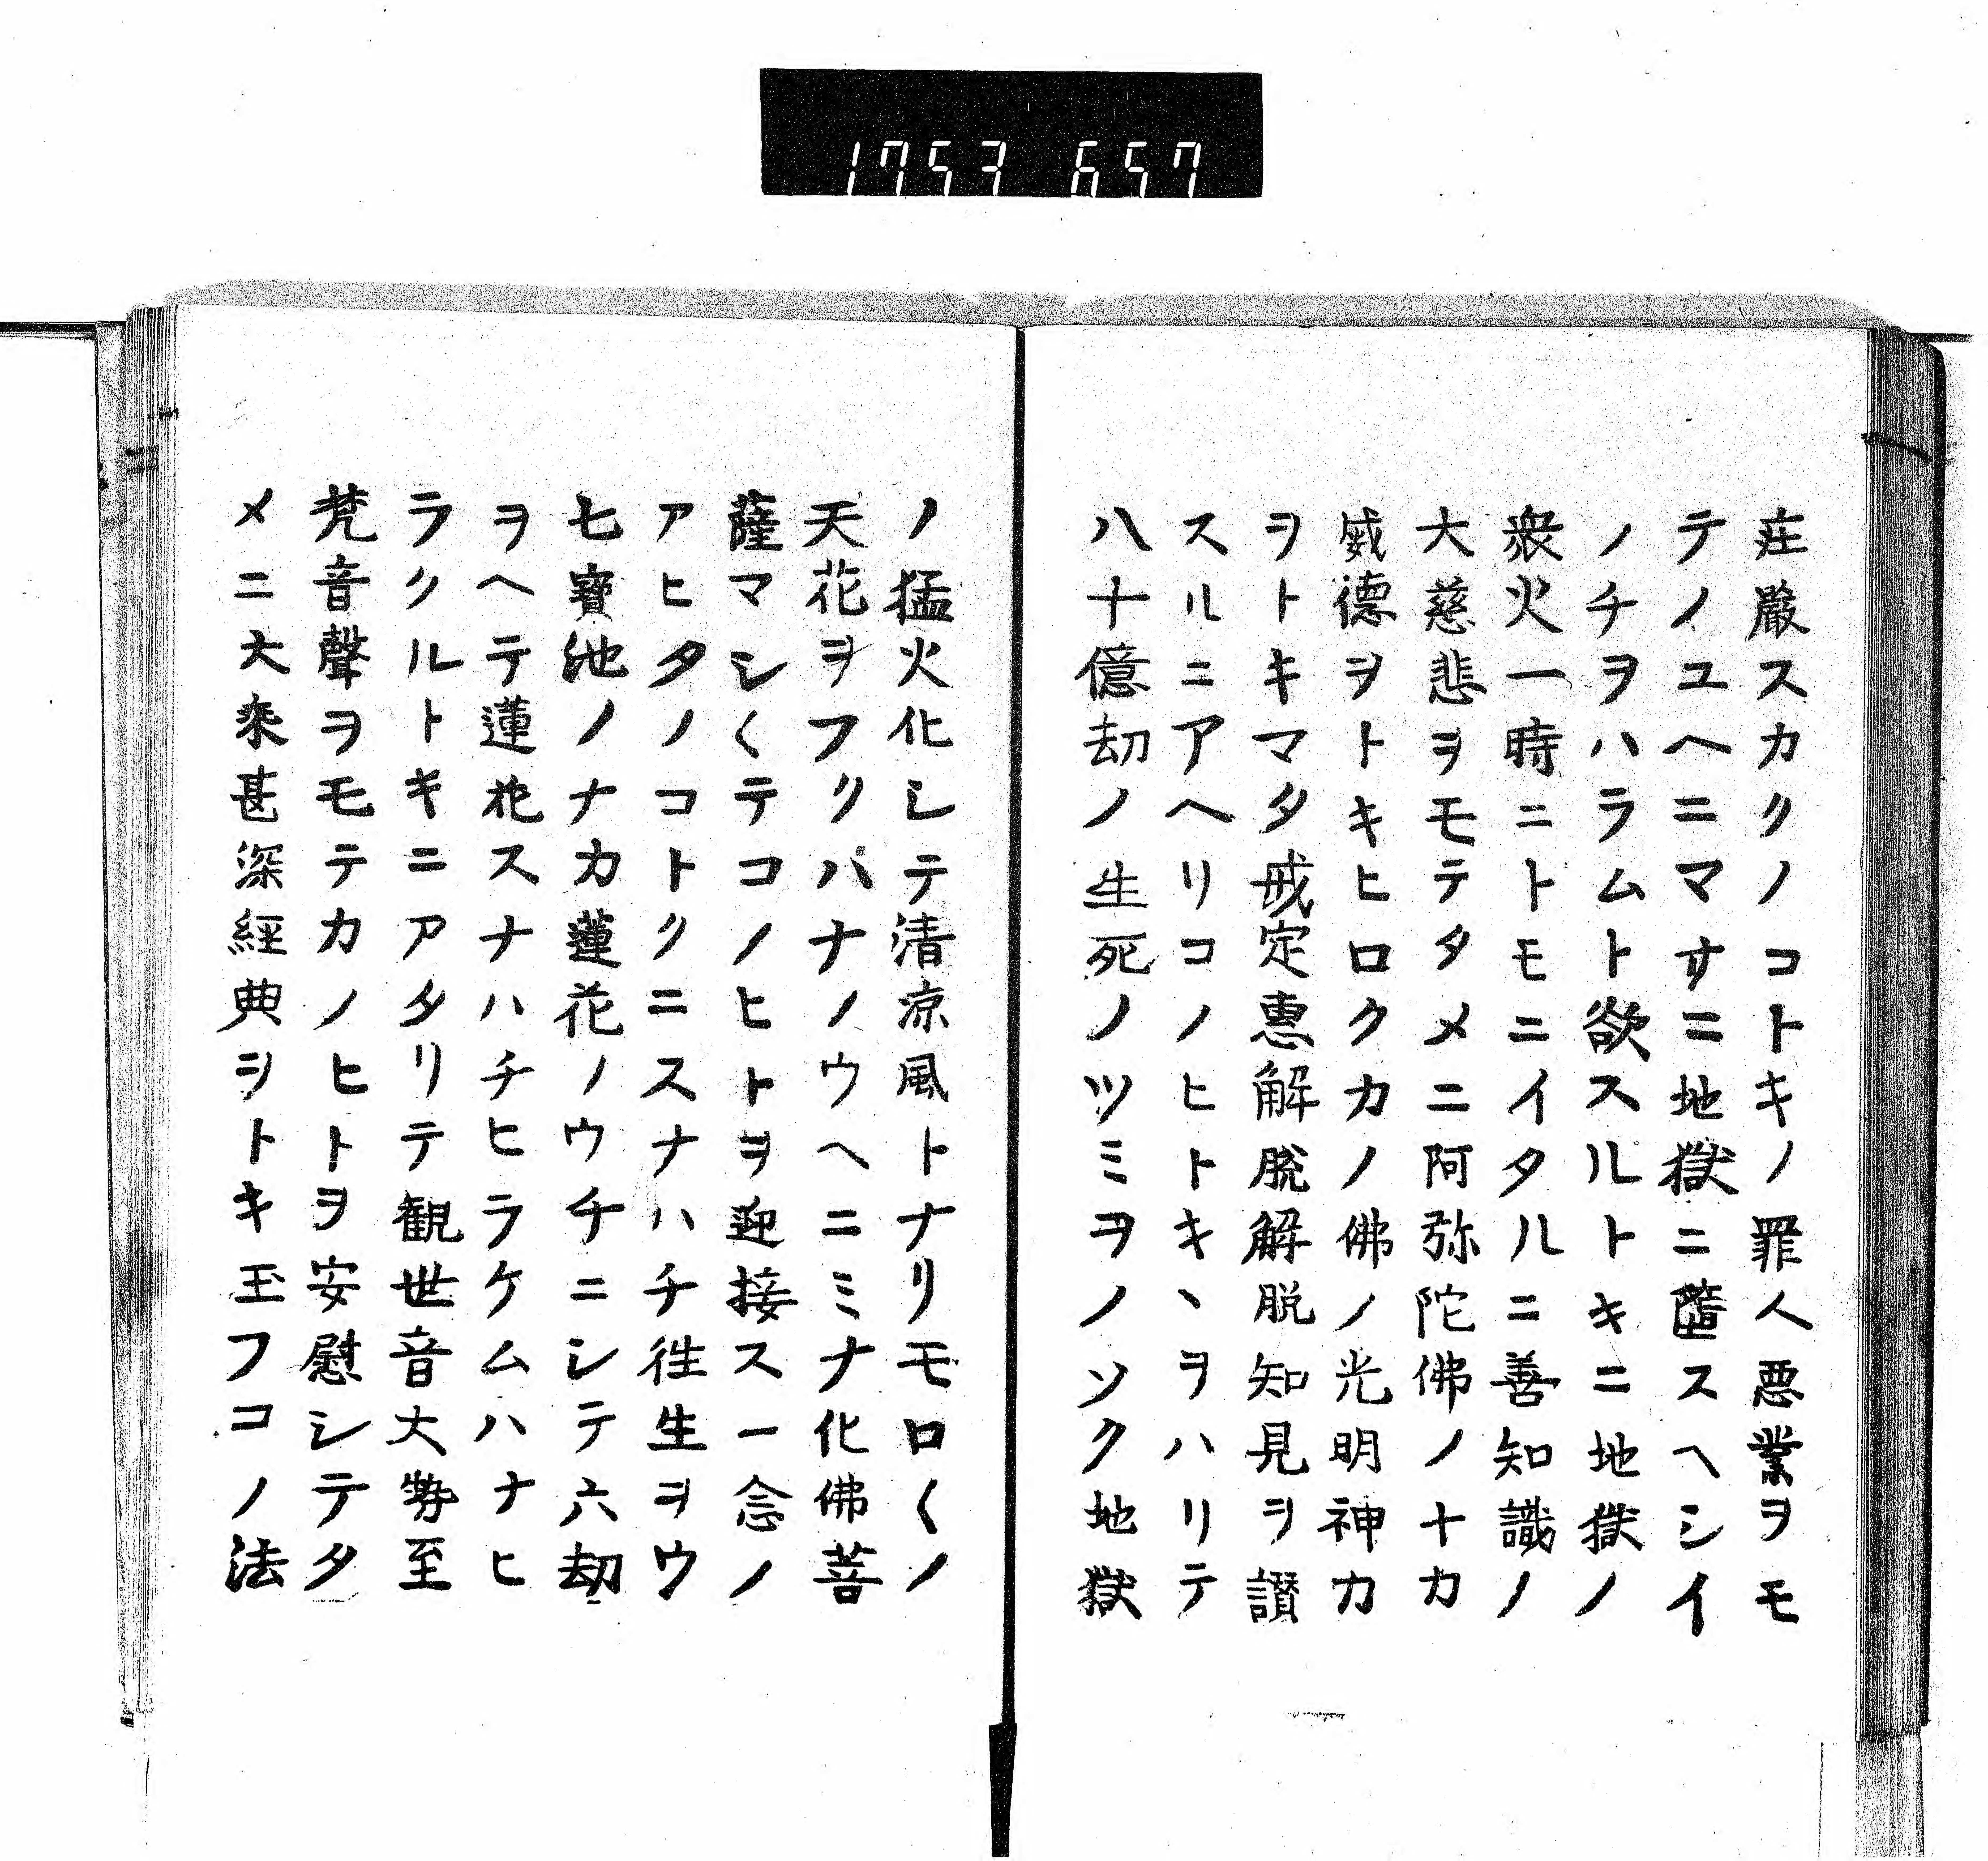 1753 657
荘厳スカクノコトキノ罪人悪業ヲモ
テノユヘニマサニ地獄ニ墮スヘシイ
ノチヲハラムト欲スルトキニ地獄ノ
衆火一時ニトモニイタルニ善知識ノ
大慈悲ヲモテタメニ阿弥陀佛ノ十カ
威德ヲトキヒロクカノ佛ノ光明神カ
ヲトキマタ戒定惠解脱解脱知見ヲ讃
スルニアヘリコノヒトキヽヲハリテ
八十億劫ノ生死ノツミヲノソク地獄
ノ猛火化シテ清凉風トナリモロ〱ノ
天花ヲフクハナノウヘニミナ化佛菩
薩マシ〱テコノヒトヲ迎接ス一念ノ
アヒタノコトクニスナハチ徃生ヲウ
七寳池ノナカ蓮花ノウチニシテ六劫
ヲヘテ蓮花スナハチヒラケムハナヒ
ラクルトキニアタリテ観世音大勢至
梵音聲ヲモテカノヒトヲ安慰シテタ
メニ大乘甚深經典ヲトキ玉フコノ法